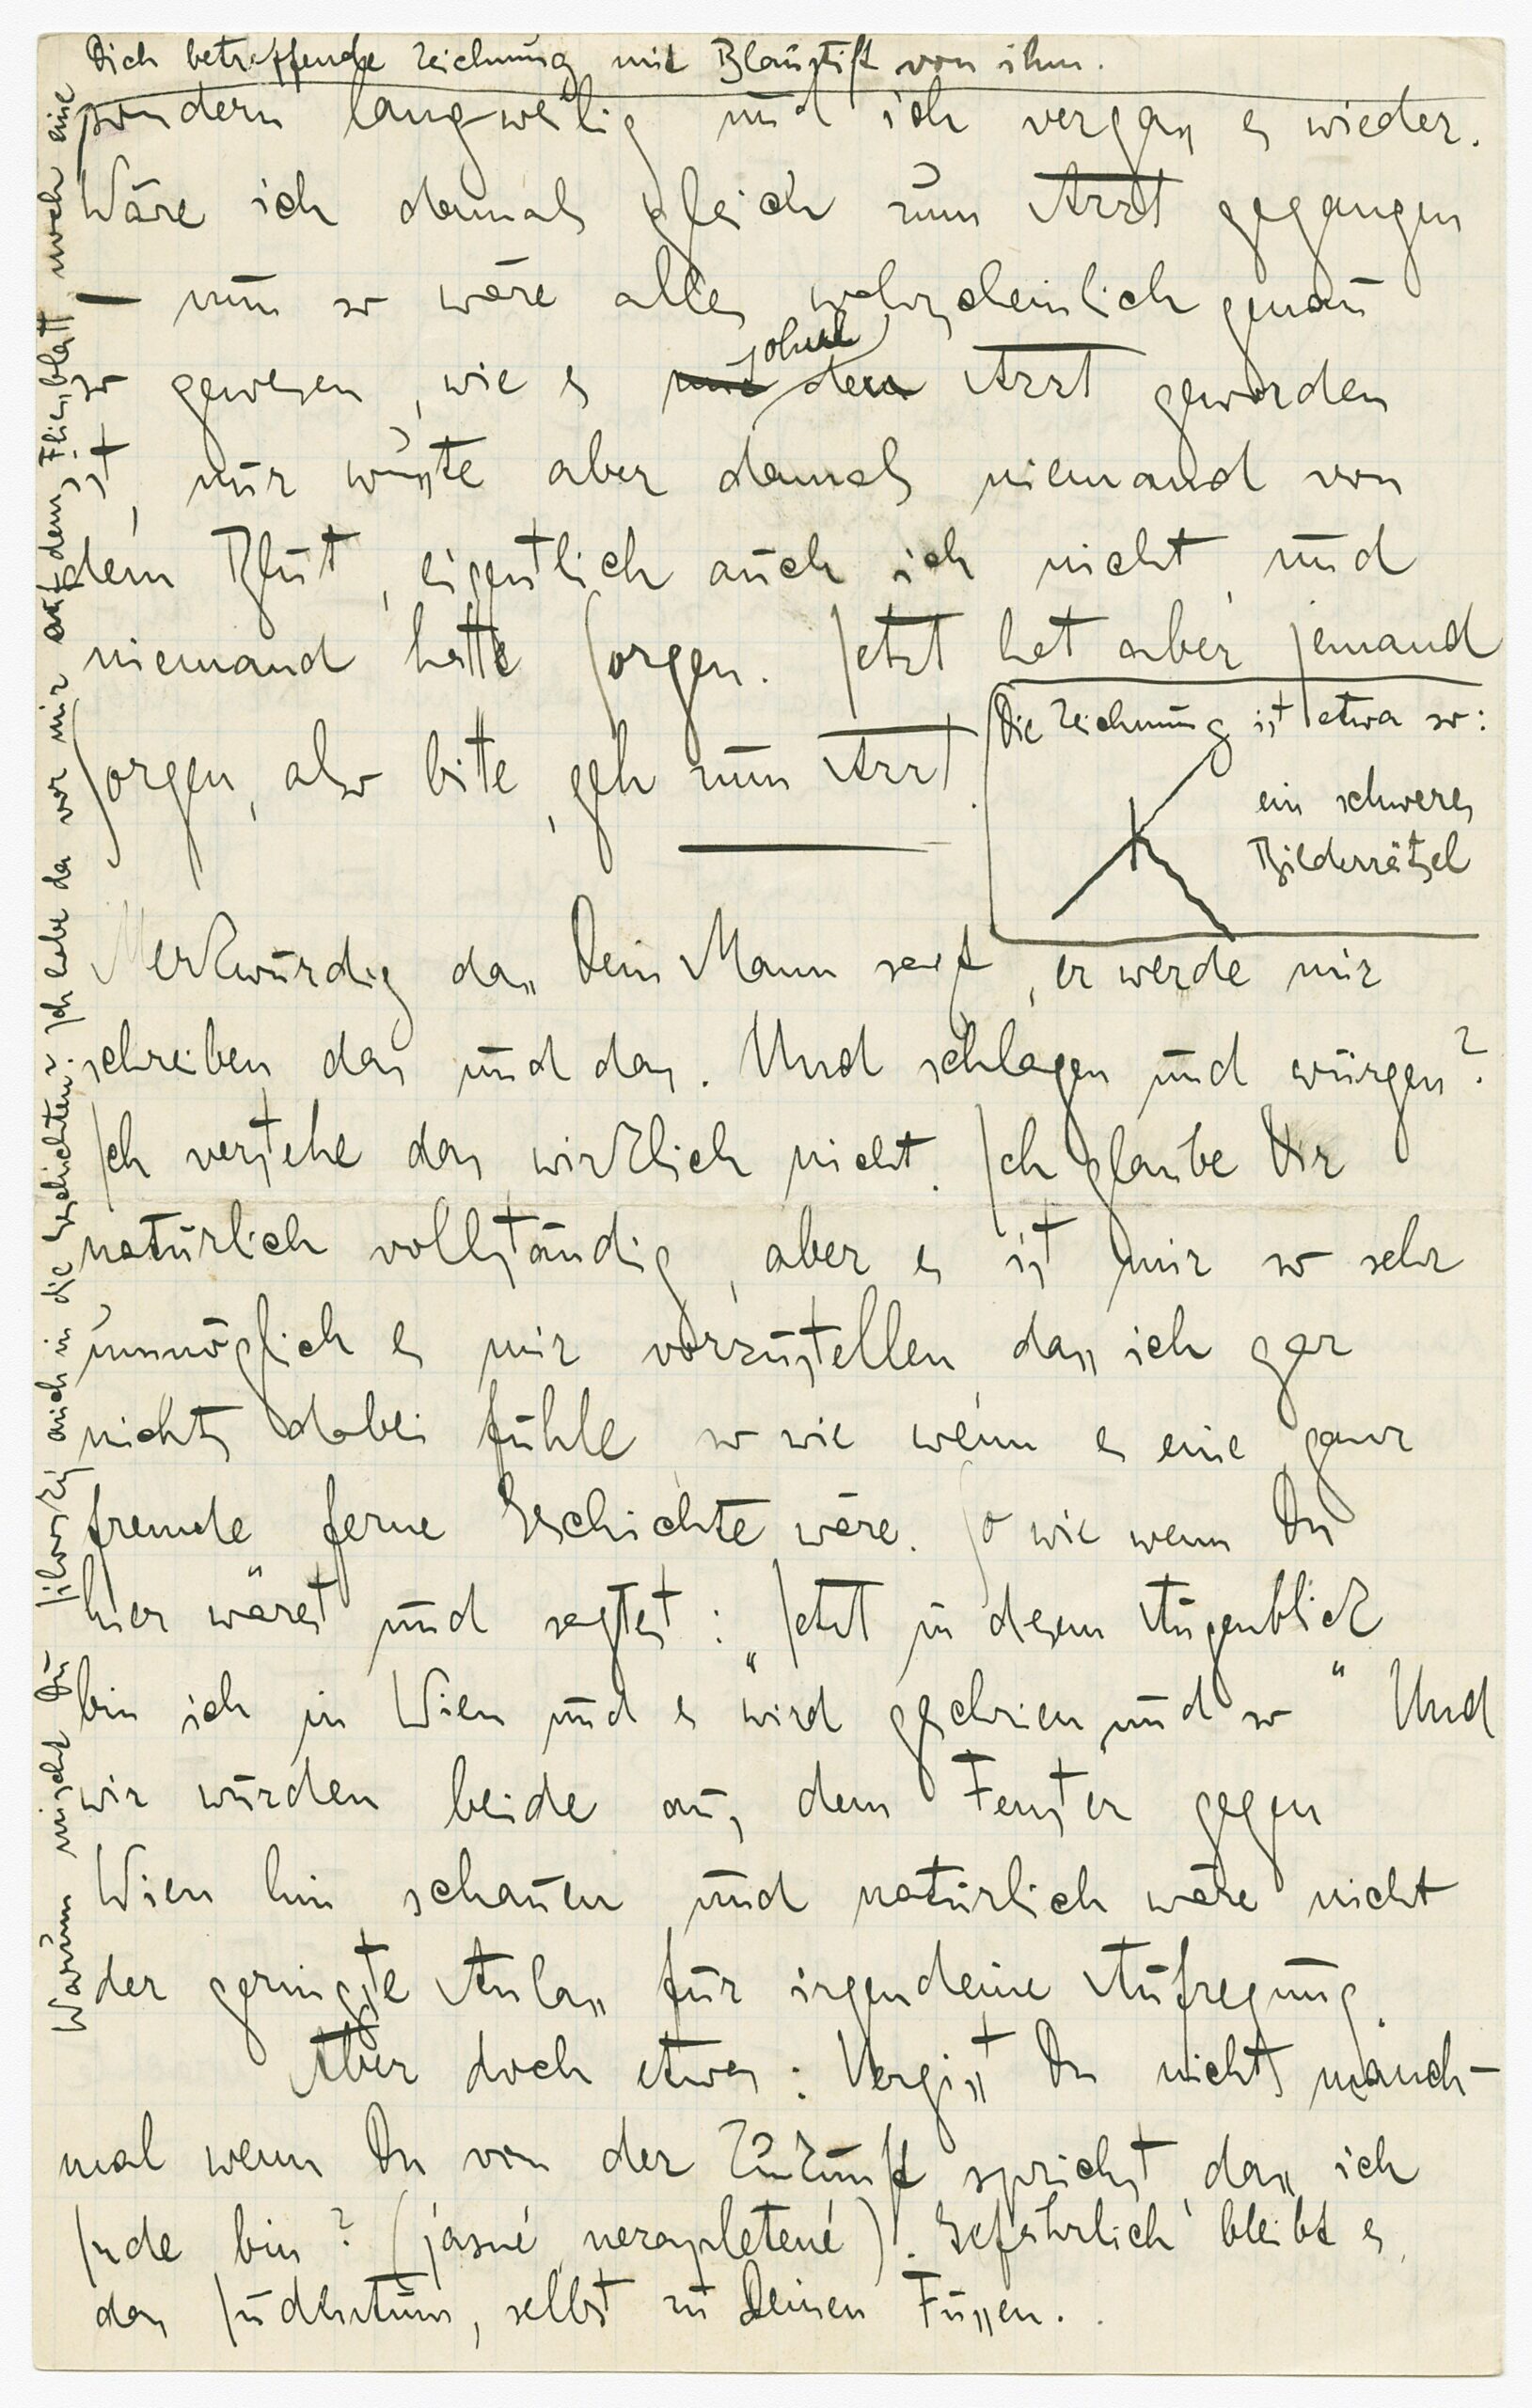 Dich betreffende Zeichnung mit Blaustift von ihm.
sondern langweilig und ich vergass es wieder.
Wäre ich damals gleich zum Arzt gegangen
— nun so wäre alles wahrscheinlich genau
so gewesen, wie es ohne Arzt geworden
ist, nur wusste aber damals niemand von
dem Blut, eigentlich auch ich nicht, und
niemand hatte Sorgen. Jetzt hat aber jemand
Sorgen, also bitte, geh zum Arzt.
Die Zeichnung ist etwa so:
ein schweres
Bilderrätsel
Merkwürdig dass Dein Mann sagt, er werde mir
schreiben das und das. Und schlagen und würgen?
Ich verstehe das wirklich nicht. Ich glaube Dir
natürlich vollständig, aber es ist mir so sehr
unmöglich es mir vorzustellen, dass ich gar
nichts dabei fühle, so wie wenn es eine ganz
fremde ferne Geschichte wäre. So wie wenn Du
hier wärest und sagtest: „Jetzt in diesem Augenblick
bin ich in Wien und es wird geschrien und so“ Und
wir würden beide aus dem Fenster gegen
Wien hin schauen und natürlich wäre nicht
der geringste Anlass für irgendeine Aufregung.
Aber doch etwas: Vergisst Du nicht manch-
mal wenn Du von der Zukunft sprichst, dass ich
Jude bin? (jasné, nezapletené). Gefährlich bleibt es,
das Judentum, selbst zu Deinen Füssen.
Warum mischst Du Jílovský auch in die Geschichten? Ich habe da vor mir auf dem Fliessblatt noch eine